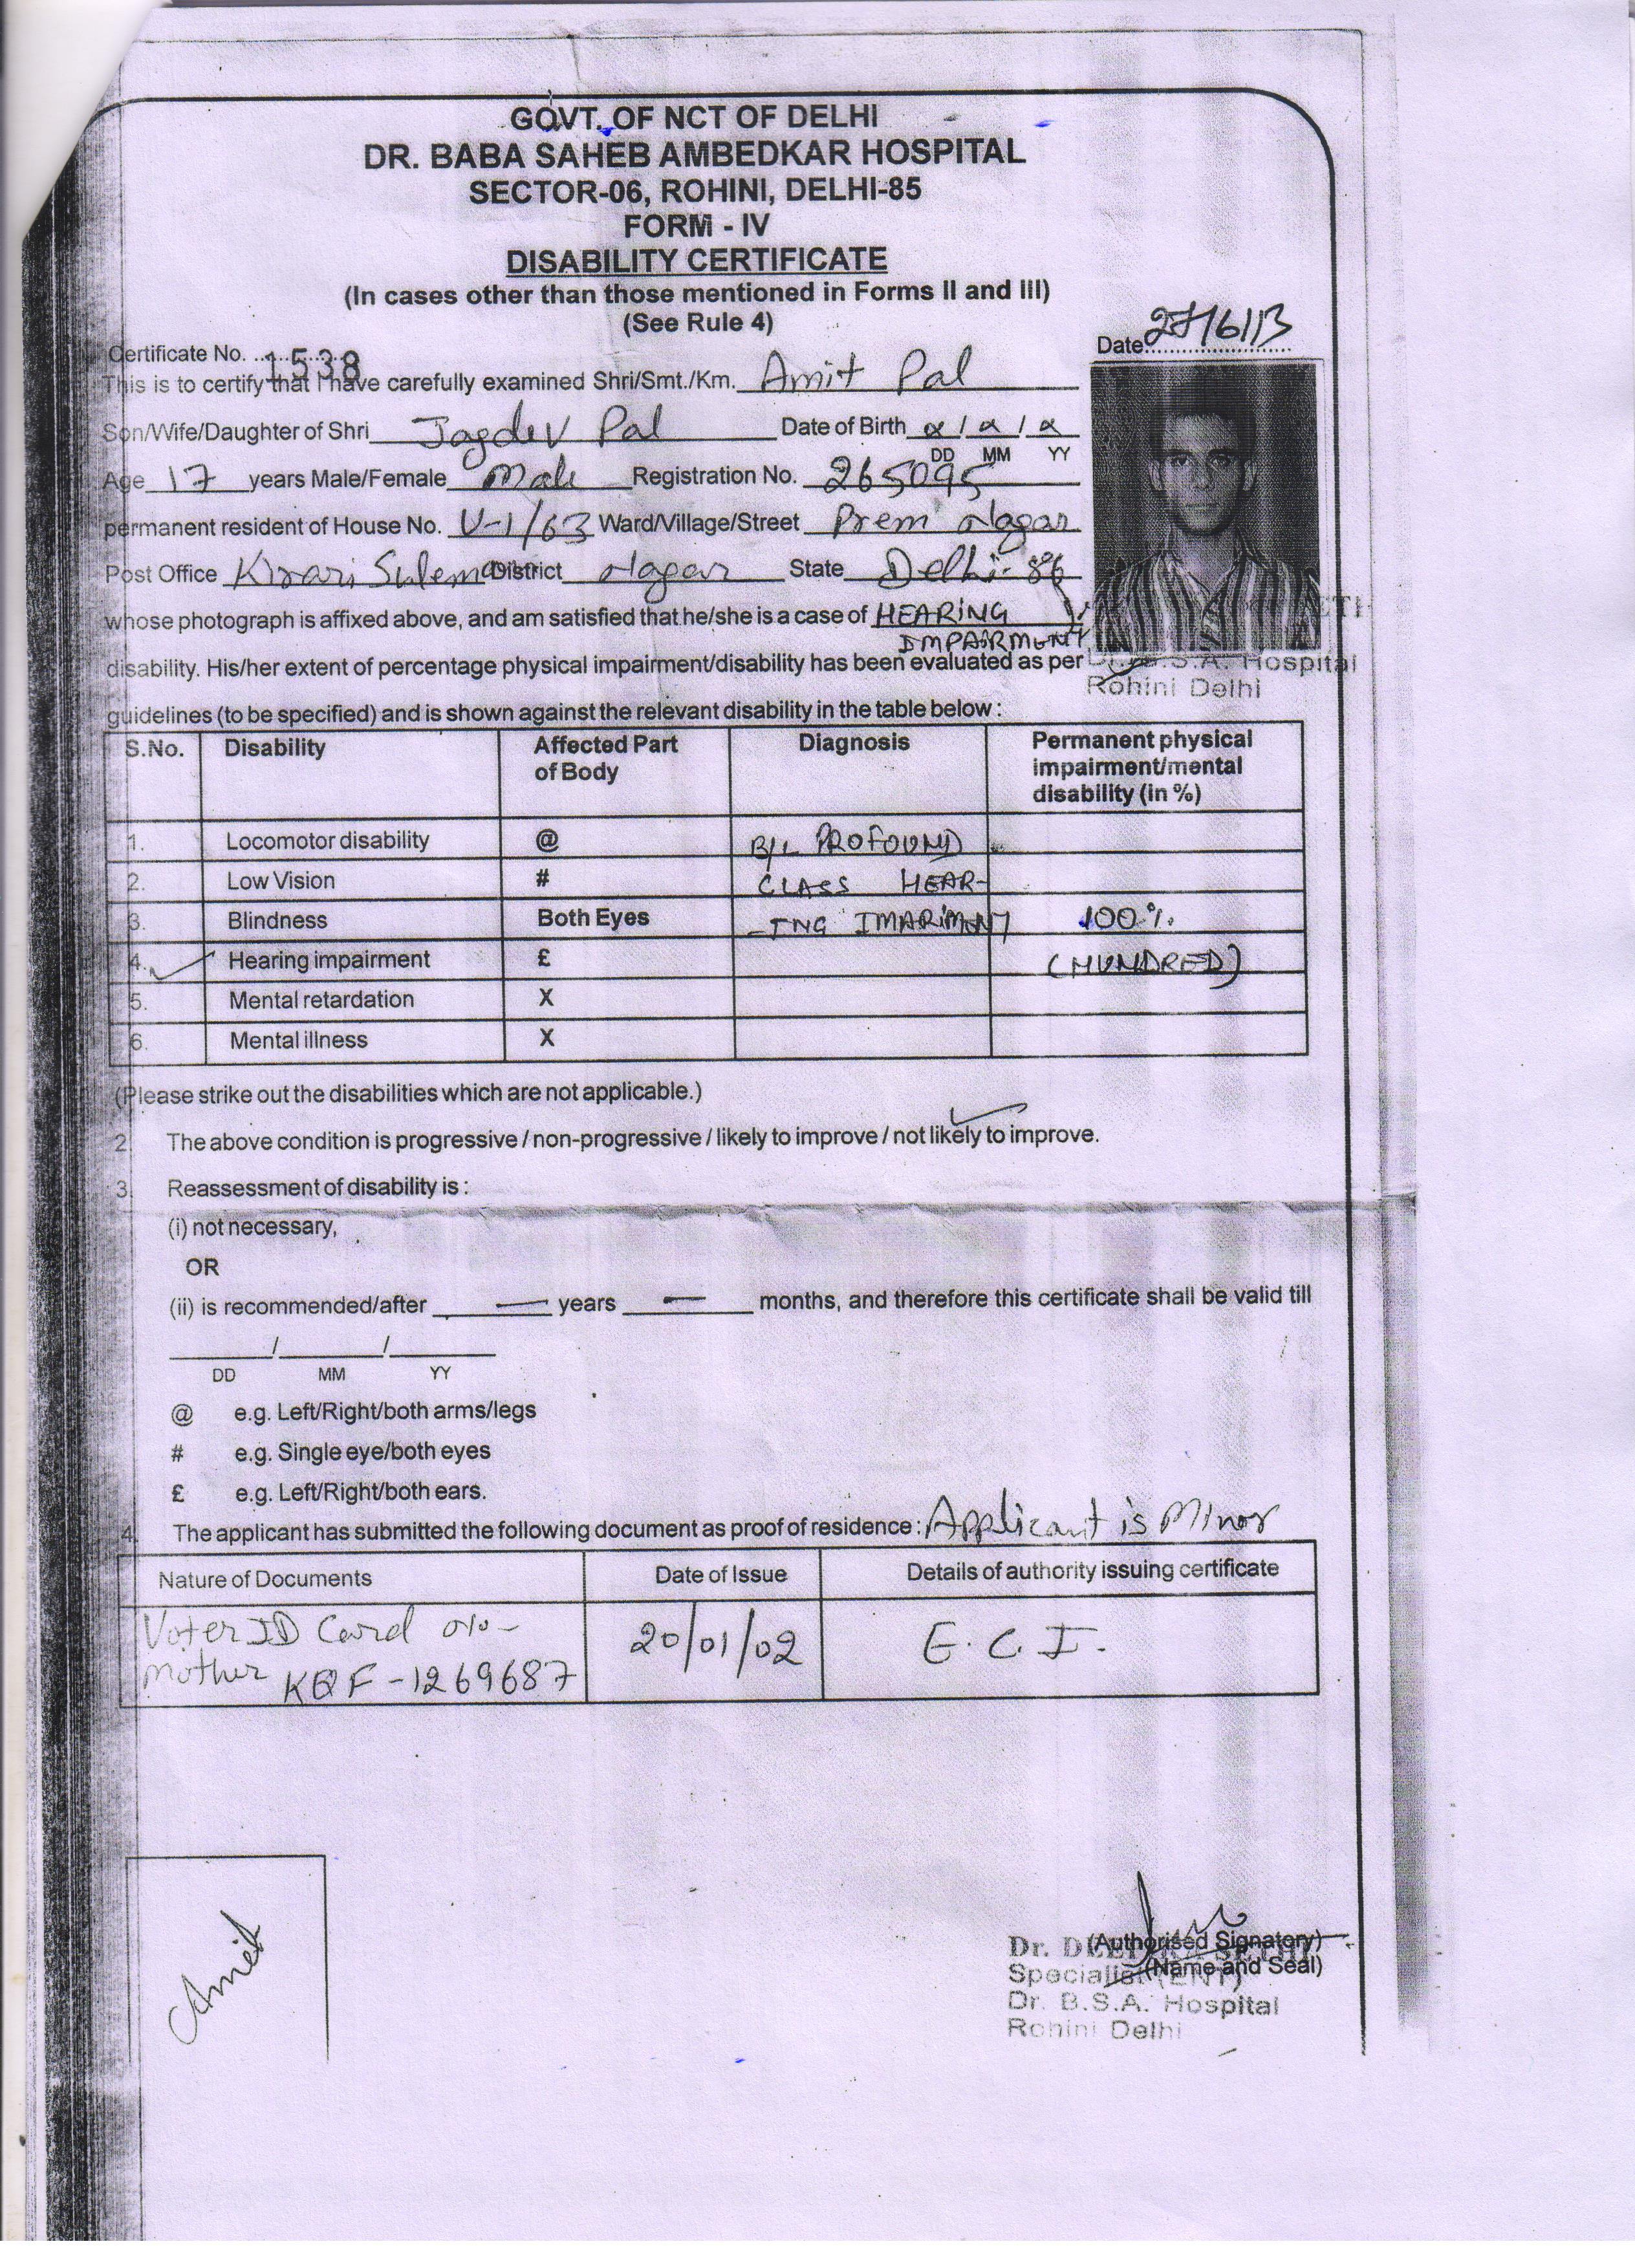 GOVT. OF NCT OF DELHI
DR. BABA SAHEB AMBEDKAR HOSPITAL
SECTOR-06, ROHINI, DELHI-85
FORM - IV
DISABILITY CERTIFICATE
(In cases other than those mentioned in Forms II and III)
(See Rule 4)
Date 27/6/13
Certificate No. 1538
This is to certify that I have carefully examined Shri/Smt./Km. Amit Pal
Son/Wife/Daughter of Shri Jagdev Pal Date of Birth / /
DD MM YY
Age 17 years Male/Female Male Registration No. 265095
permanent resident of House No. U-1/63 Ward/Village/Street Prem Nagar
Post Office Kirari Suleman District Nagar State Delhi-86
whose photograph is affixed above, and am satisfied that he/she is a case of HEARING
IMPAIRMENT
disability. His/her extent of percentage physical impairment/disability has been evaluated as per
Dr. B.S.A. Hospital
Rohini Delhi
guidelines (to be specified) and is shown against the relevant disability in the table below :
S.No. Disability Affected Part of Body Diagnosis Permanent physical impairment/mental disability (in %)
1. Locomotor disability @ B/L PROFOUND
2. Low Vision # CLASS HEAR-
3. Blindness Both Eyes -ING IMARIMENT 100%
4. Hearing impairment £ (HUNDRED)
5. Mental retardation X
6. Mental illness X
(Please strike out the disabilities which are not applicable.)
2. The above condition is progressive / non-progressive / likely to improve / not likely to improve.
3. Reassessment of disability is :
(i) not necessary,
OR
(ii) is recommended/after — years — months, and therefore this certificate shall be valid till
/ /
DD MM YY
@ e.g. Left/Right/both arms/legs
# e.g. Single eye/both eyes
£ e.g. Left/Right/both ears.
4. The applicant has submitted the following document as proof of residence : Applicant is Minor
Nature of Documents Date of Issue Details of authority issuing certificate
Voter ID Card 20/01/02 E.C.I.
mother KQF-1269687
Amit
(Authorised Signatory)
(Name and Seal)
Dr.
Specialist (ENT)
Dr. B.S.A. Hospital
Rohini Delhi